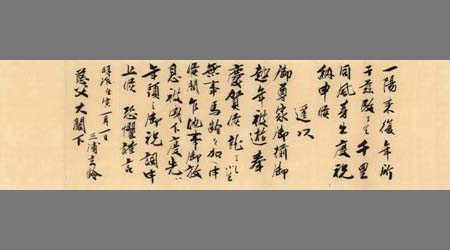 一陽来復年所
干茲改 千里
同風芽出度祝
納申候
遥以
御尊家御揃御
越年被遊奉
慶賀候
無事馬齢 加 申
候間乍他事御放
念被下度先ハ
年頭之御祝詞申
上候 恐惶謹言
明治壬寅一月一日
三浦
慈父大閣下